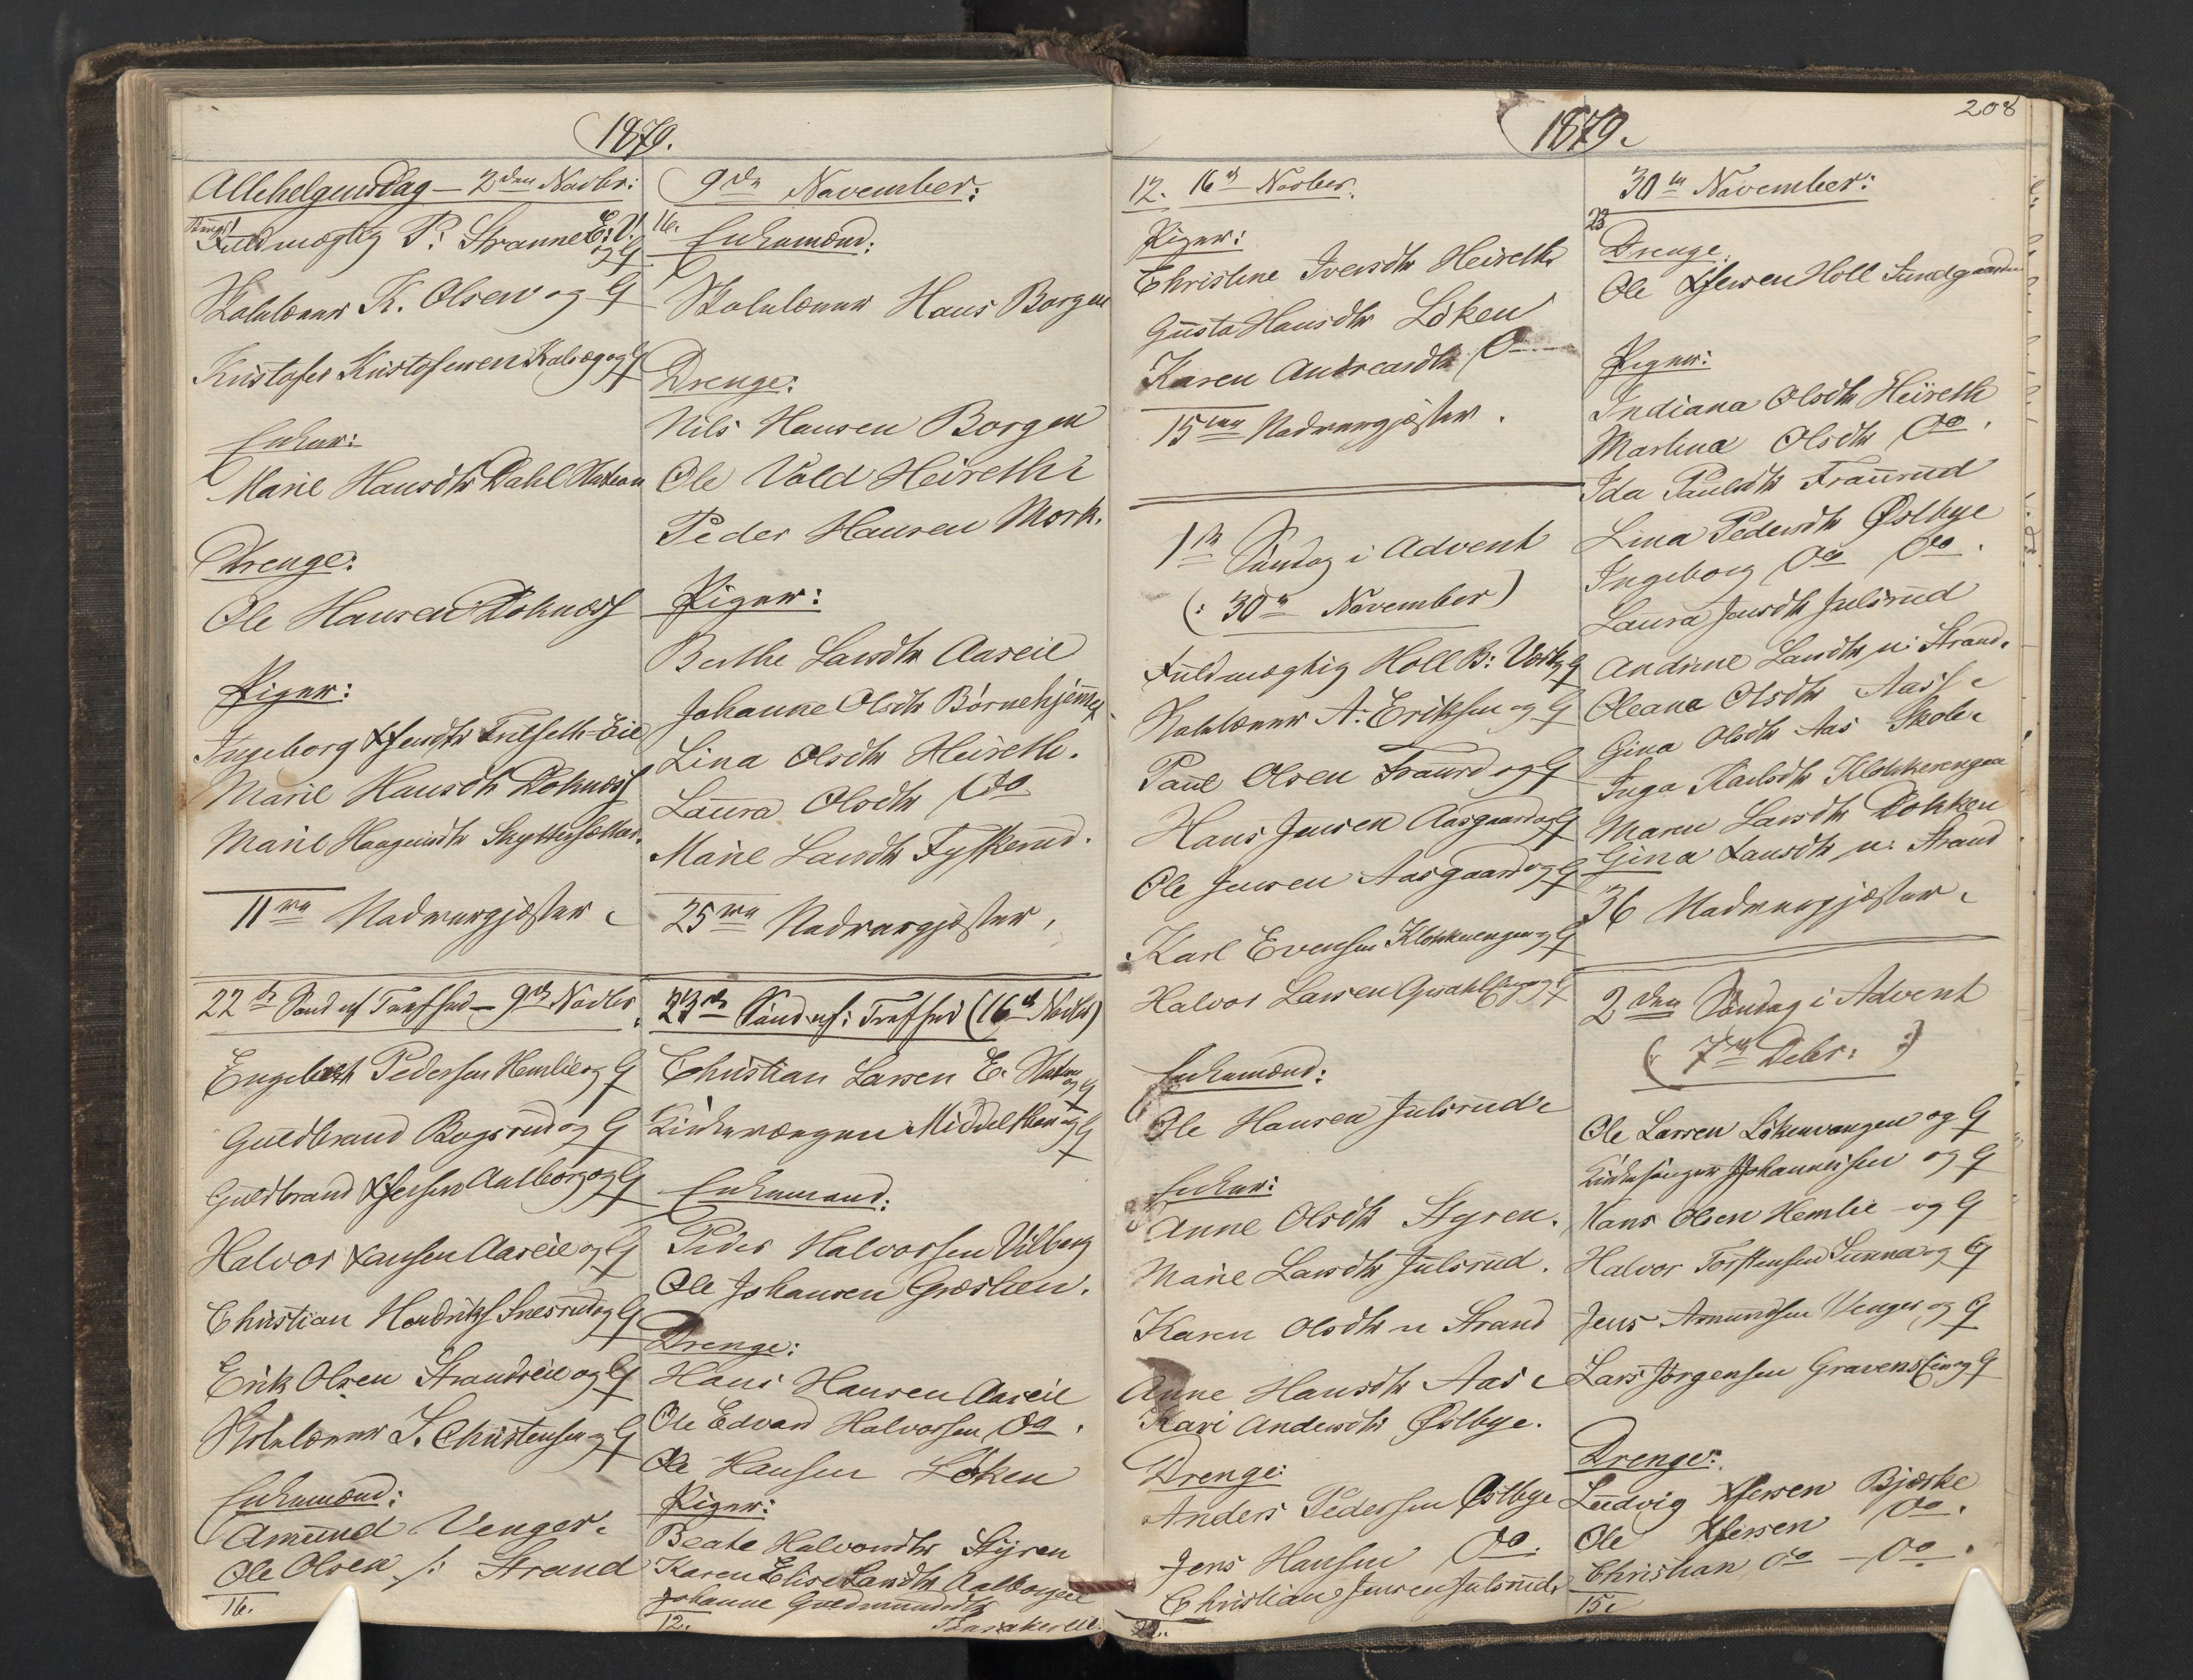 1879.
Allehelgensdag – 2den Novbr:
Fuldmægtig P. Stranne E: V. og G
Skolelærer K. Olsen og G
Kristofer Kristofersen og G
Enker:
Marie Hansdtr Dahl
Drenge:
Ole Hansen Dokness
Piger:
Ingeborg Eie
Marie Hansdtr Dokness
Marie Haagensdtr
11 Nadvergjæster
22de Sønd. ef. Trefhed – 9de Novbr.
Engebret Pedersen Hemlie og G
Guldbrand Bogsrud og G
Guldbrand Aalborg og G
Halvor Larssen Aaseie og G
Christian Hendriks. og G
Erik Olsen Strandseie og G
Skolelærer S. Christensen og G
Enkemænd:
Amund Venger.
Ole Olsen Strand
16.
9de November:
16.
Enkemænd:
Skolelærer Hans Borgen
Drenge:
Nils Hansen Borgen
Ole Vold Heireth
Peder Hansen Mork.
Piger:
Berthe Larsdtr Aaseie
Johanne Olsdtr Børnehjemmet
Lina Olsdtr Heireth.
Laura Olsdtr Do
Marie Larsdtr Fyskerud.
25 Nadvergjæster.
23de Sønd. ef: Trefhed (16de Novbr)
Christian Larsen E. og G
Kirkeværgen Middelthon og G
Enkemænd:
Peder Halvorsen Vilberg
Ole Johansen Græslien.
Drenge:
Hans Hansen Aaseie
Ole Edvard Halvorsen Do.
Ole Hansen Løken
Piger:
Beate Halvorsdtr Styren
Karen Elise Larsdtr Aalborgeie
Johanne Guldmundsdtr
12.
208
1879.
12. 16de Novber.
Piger:
Christine Iversdtr Heireth
Gusta Hansdtr Løken
Karen Andreasdtr Do
15 Nadvergjæster.
1ste Søndag i Advent
(: 30te November)
Fuldmægtig Holl B: Værk og G
Skolelærer A. Eriksen og G
Paul Olsen Fraurud og G
Hans Jensen Aasgaard og G
Ole Jensen Aasgaard og G
Karl Evensen Klokkerengen og G
Halvor Larsen og G
Enkemænd:
Ole Hansen Julsrud
Enker:
Anne Olsdtr Styren.
Marie Larsdtr Julsrud.
Karen Olsdtr n Strand
Anne Hansdtr Aas
Kari Andersdtr Østbye.
Drenge:
Anders Pedersen Østbye
Jens Hansen Do.
Christian Jensen Julsrud.
30te November:
23
Drenge.
Ole Holl Sundgaarden
Piger:
Indiana Olsdtr Heireth
Martina Olsdtr Do.
Ida Paulsdtr Fraurud
Lina Pedersdtr Østbye
Ingeborg Do Do.
Laura Jensdtr Julsrud
Andrine Larsdtr n: Strand.
Oleana Olsdtr Aas
Gina Olsdtr Aas Skole
Inga Karlsdtr Klokkerengen
Maren Larsdtr Dokken
Gina Larsdtr n: Strand
36 Nadvergjæster
2den Søndag i Advent
(: 7de Debr: :)
Ole Larsen Løkenvangen og G
Kirkesanger Johannesen og G
Hans Olsen Hemlie og G
Halvor Torstensen Sunna og G
Jens Amundsen Venger og G
Lars Jørgensen Gravens Eie og G
Drenge:
Ludvig Bjerke
Ole Do.
Christian Do – Do.
15.